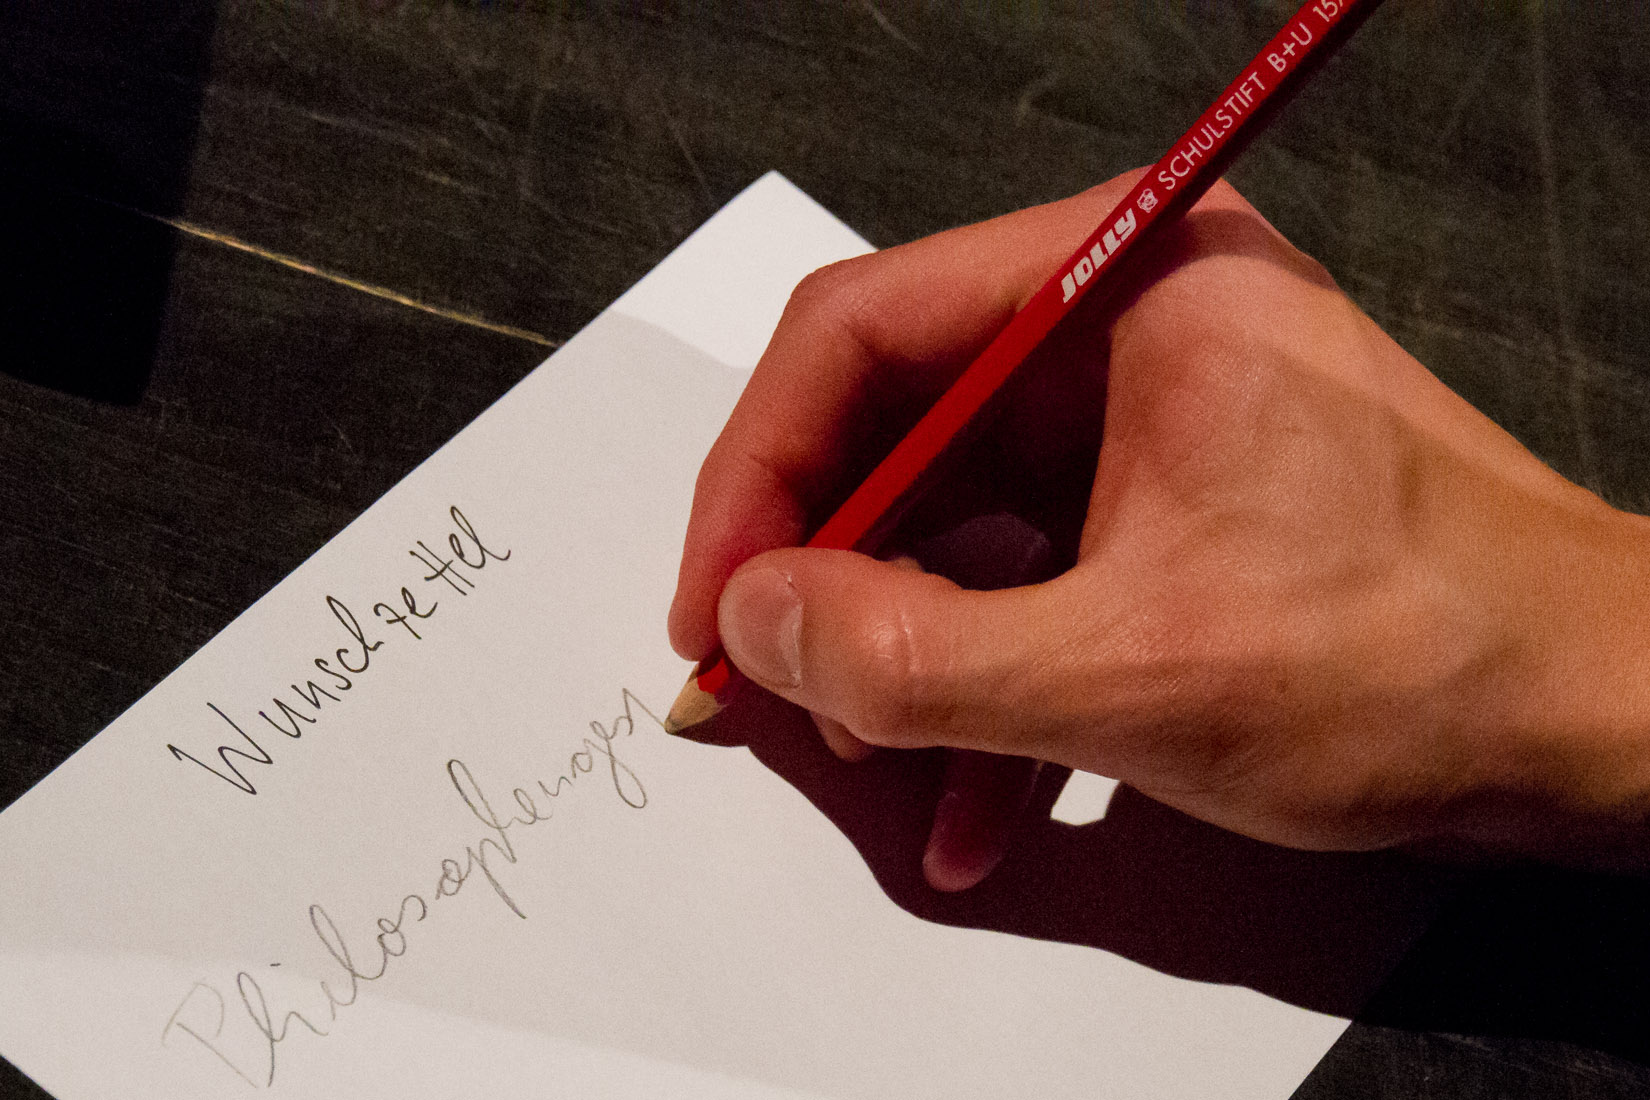 JOLLY SCHULSTIFT B+U 15
Wunschzettel
Philosophenges